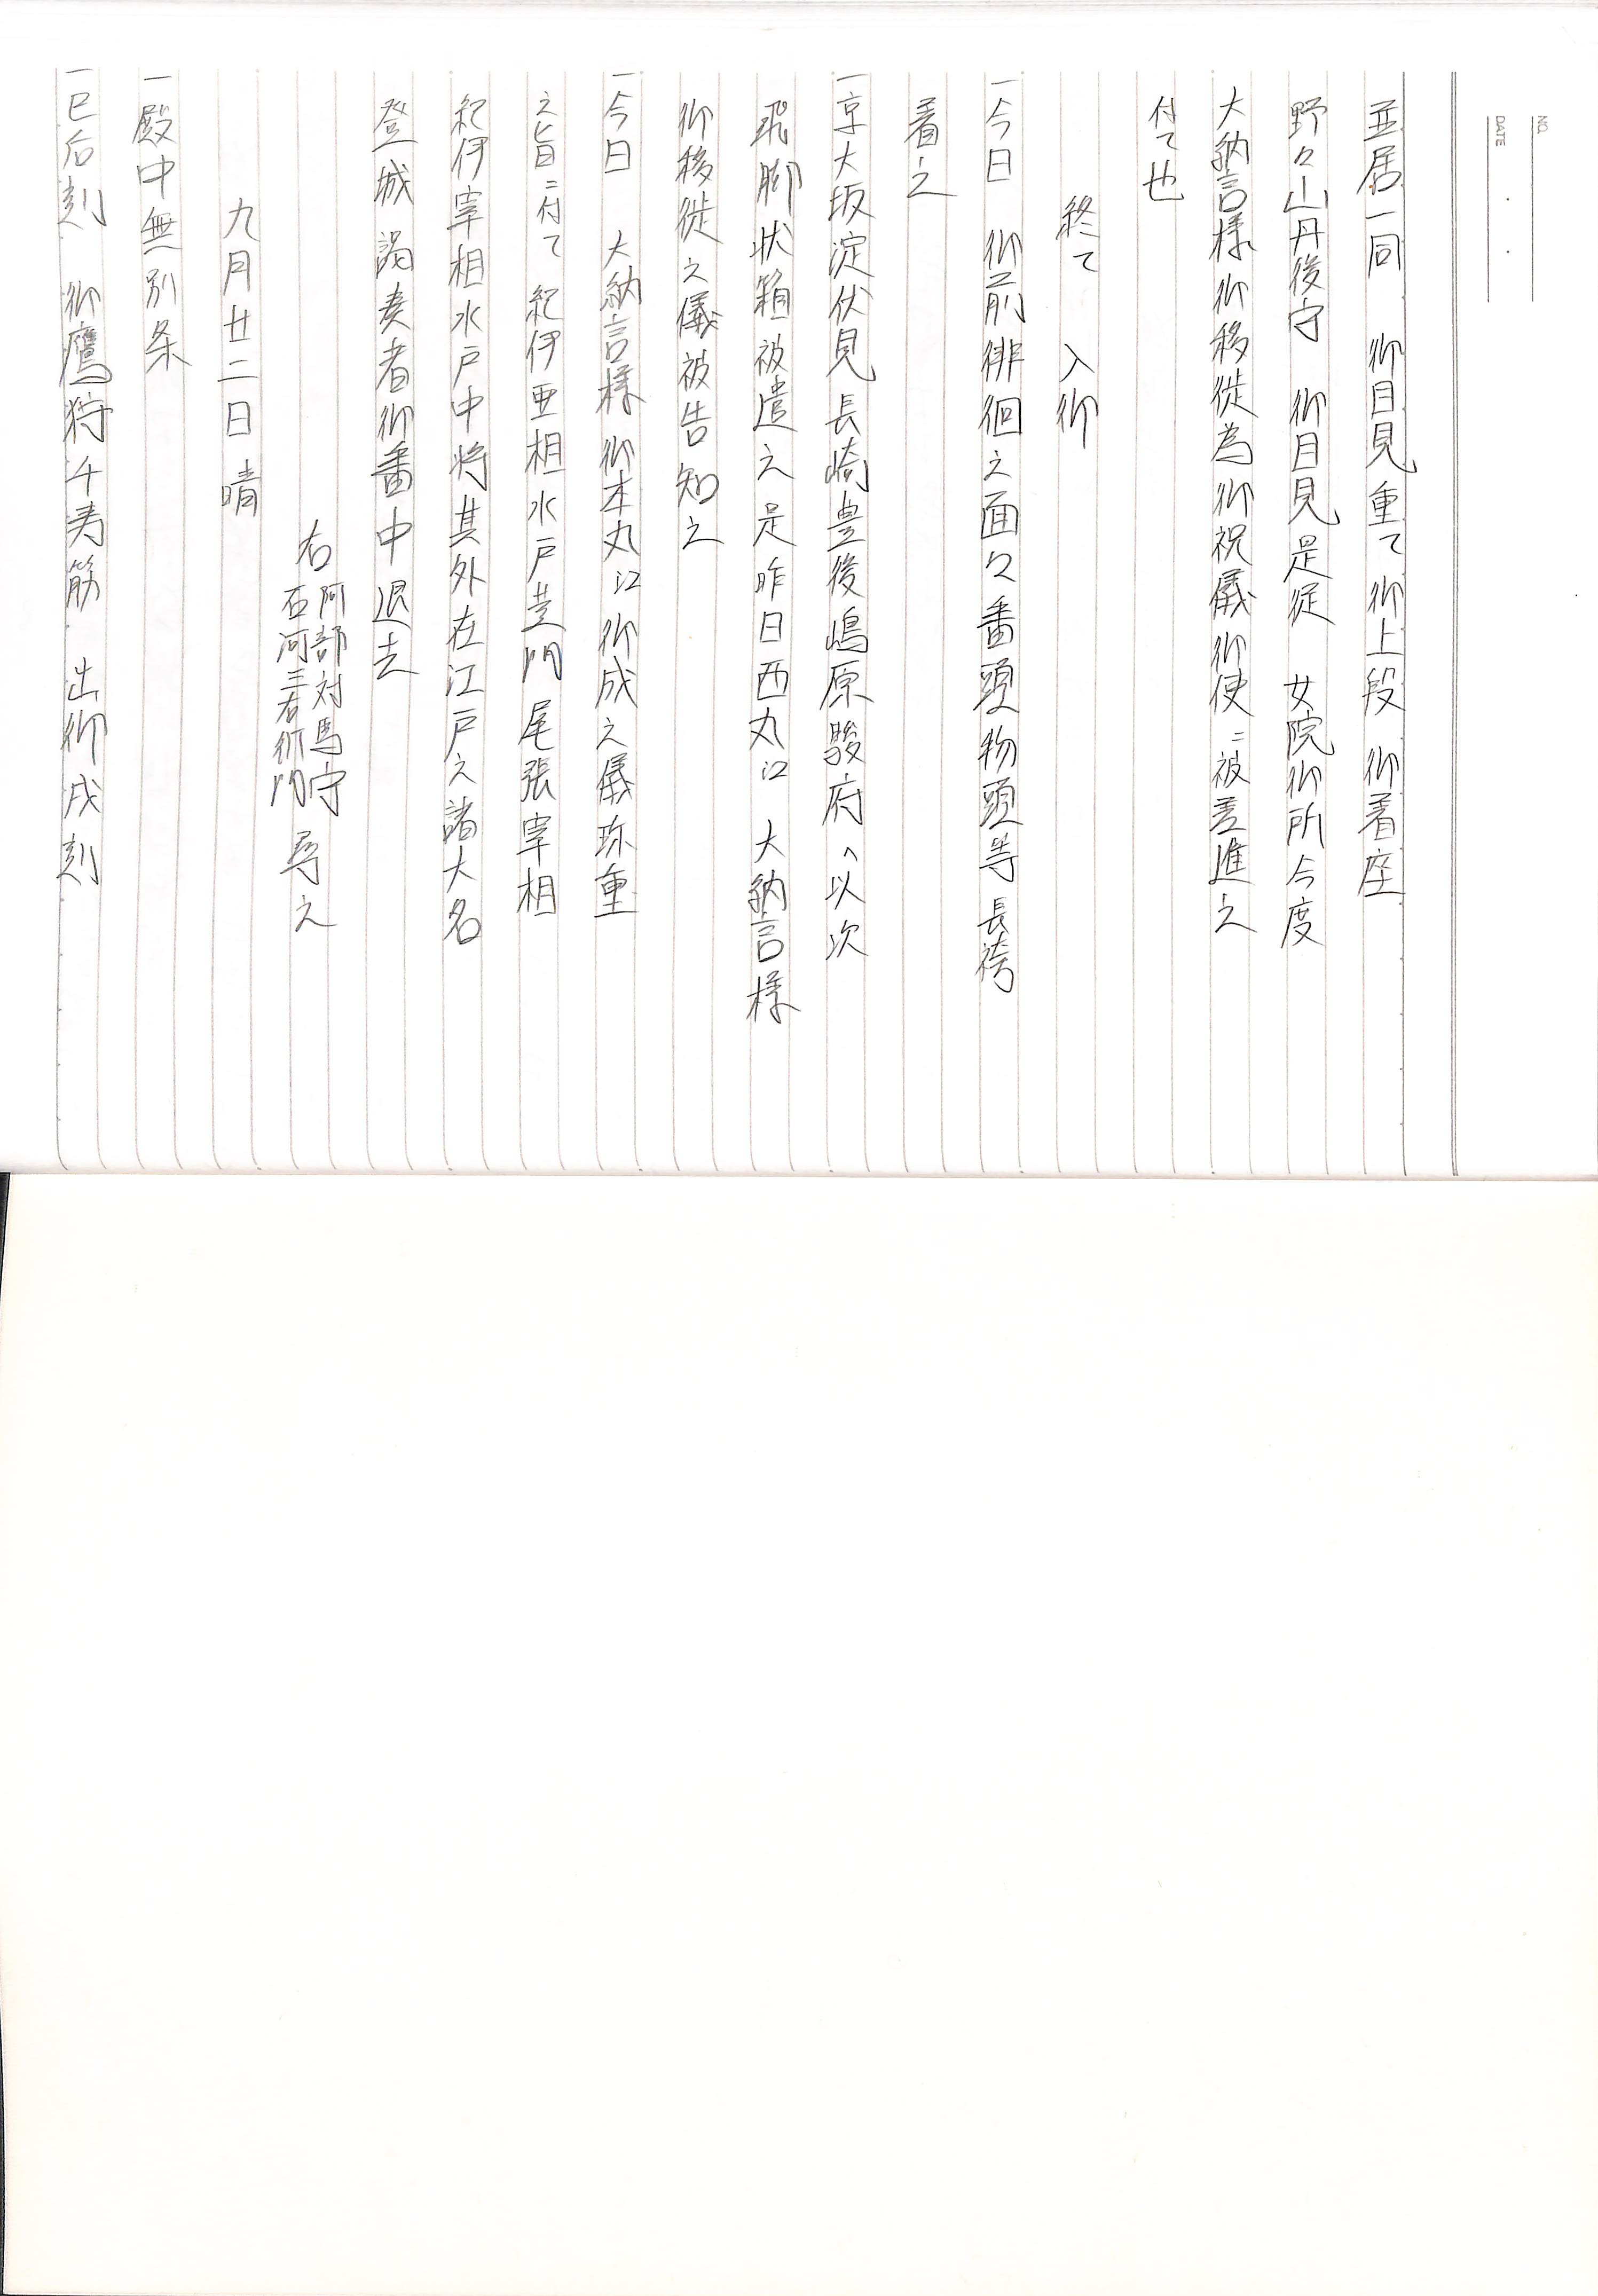 NO.
DATE
並居一同　御目見重て御上段　御着座
野々山丹後守　御目見是従　女院御所今度
大納言様御移徙為御祝儀御使ニ被差進之
付て也
終て　入御
一今日　御前徘徊之面々番頭物頭等長袴
着之
一京大坂淀伏見長崎豊後嶋原駿府へ以次
飛脚状箱被遣之是昨日西丸江　大納言様
御移徙之儀被告知之
一今日　大納言様御本丸江御成之儀珎重
之旨ニ付て　紀伊亜相水戸黄門尾張宰相
紀伊宰相水戸中将其外在江戸之諸大名
登城　謁奏者御番中退去
右　阿部対馬守　石河三右衛門　尋之
九月廿二日晴
一殿中無別条
一巳后刻　御鷹狩千寿筋　出御戌刻